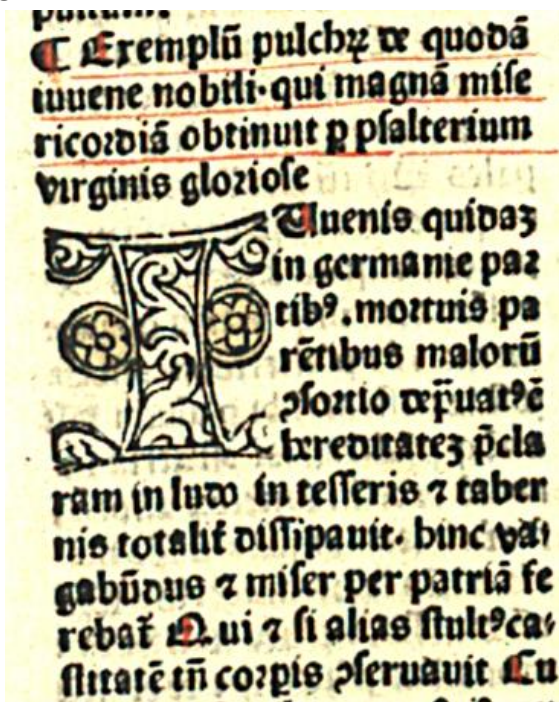 ¶ Exemplū pulchꝝ de quodā
iuuene nobili·qui magnā mise
ricordiā obtinuit ꝑ psalterium
virginis gloriose
IUuenis quidaꝫ
in germanie par
tibꝰ. mortuis pa
rētibus malorū
ꝯsortio dep̄uatꝰ ē
hereditateꝫ p̄cla
ram in ludo in tesseris ⁊ taber
nis totalit̄ dissipauit. hinc va⸗
gabūdus ⁊ miser per patriā fe
rebat̄ Qui ⁊ si alias stultꝰ ca⸗
stitatē tn̄ corꝑis ꝯseruauit Cu